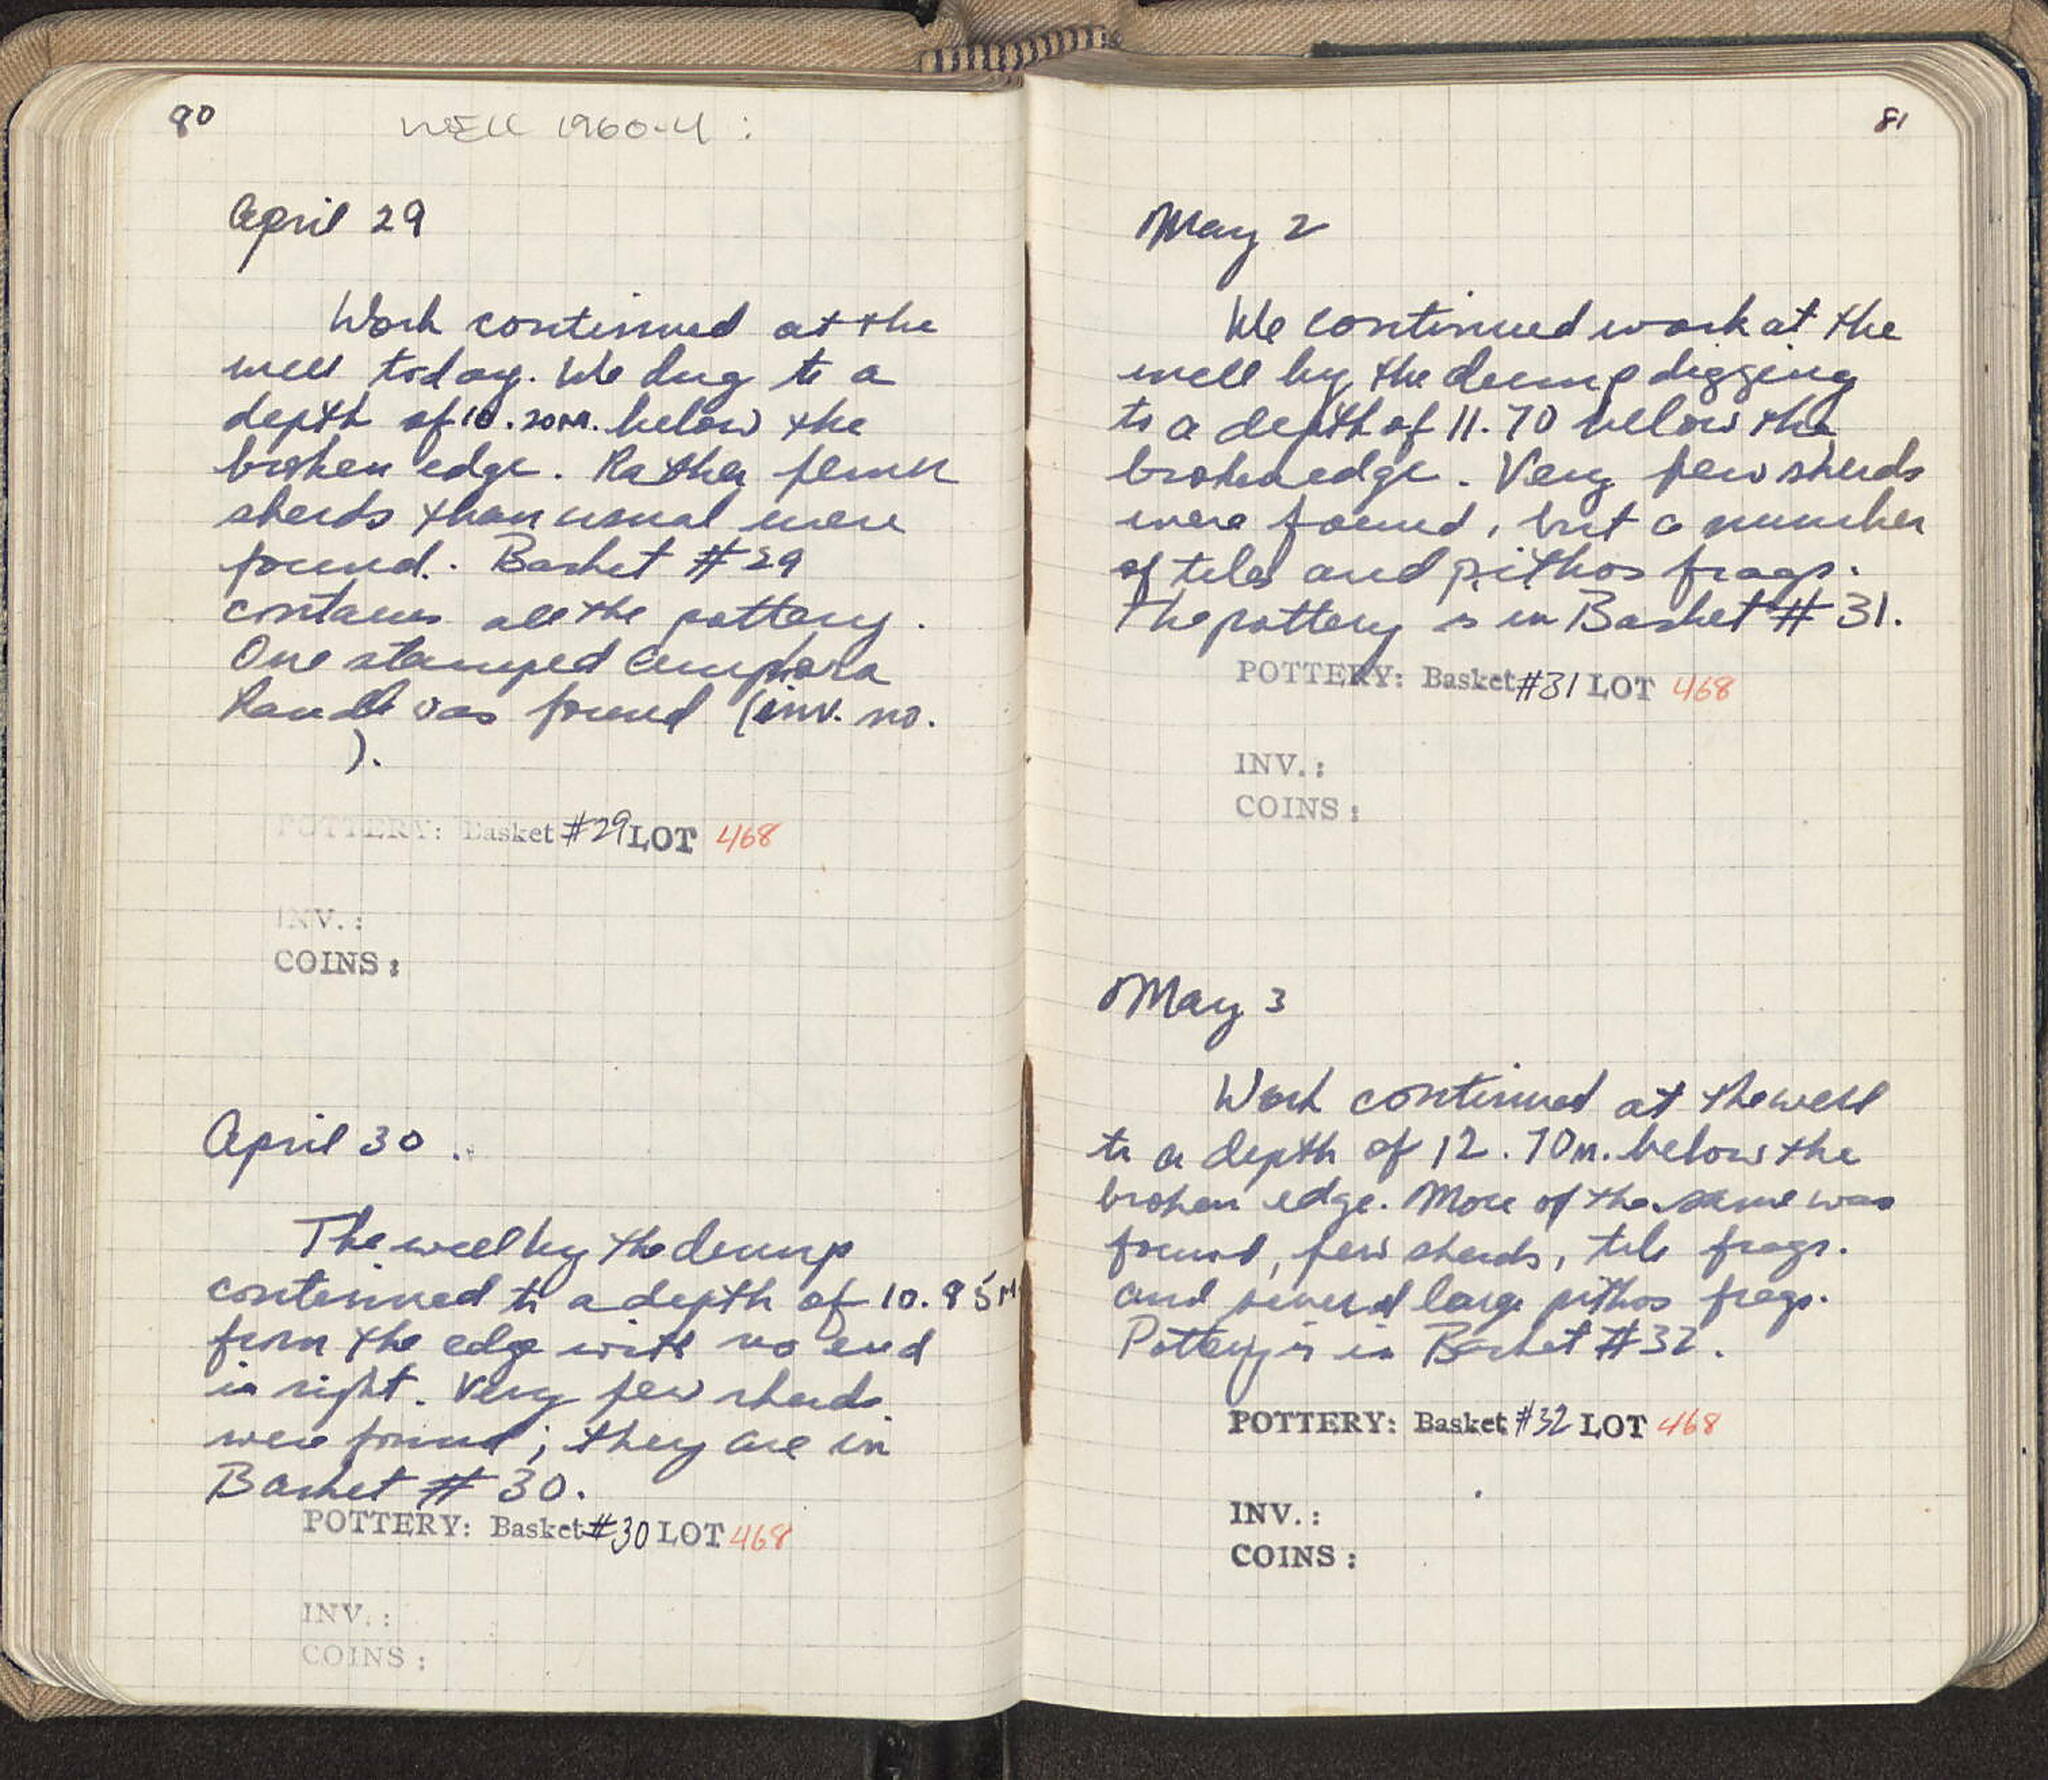 80
WELL 1960-4 :
April 29
Work continued at the
well today. We dug to a
depth of 10.20M. below the
broken edge. Rather fewer
sherds than usual were
found. Basket #29
contains all the pottery.
One stamped amphora
handle was found (inv. no.
).
POTTERY: Basket #29 LOT 468
INV.:
COINS:
April 30.
The well by the dump
continued to a depth of 10.95M
from the edge with no end
in sight. Very few sherds
were found; they are in
Basket # 30.
POTTERY: Basket #30 LOT 468
INV.:
COINS:
81
May 2
We continued work at the
well by the dump digging
to a depth of 11.70 below the
broken edge. Very few sherds
were found, but a number
of tiles and pithos frags.
The pottery is in Basket # 31.
POTTERY: Basket #31 LOT 468
INV.:
COINS:
May 3
Work continued at the well
to a depth of 12.70m. below the
broken edge. More of the same was
found, few sherds, tile frags.
and several large pithos frags.
Pottery is in Basket #32.
POTTERY: Basket #32 LOT 468
INV.:
COINS: